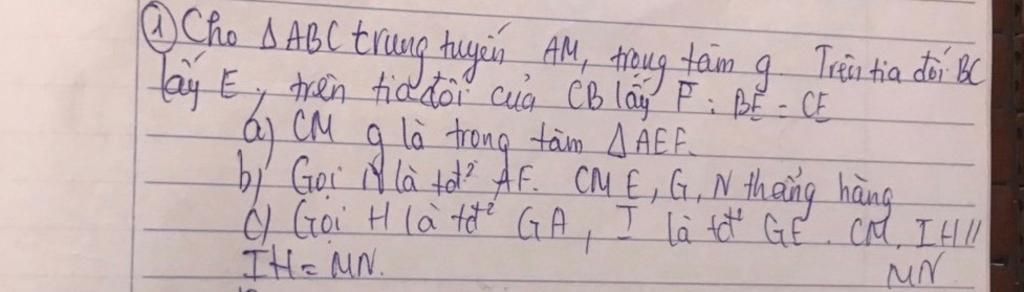 ① Cho ΔABC trung tuyến AM, trọng tâm g. Trên tia đối BC
lấy E, trên tia đối của CB lấy F : BE = CE
a) CM g là trong tâm ΔAEF.
b) Gọi N là tđ² AF. CM E, G, N thẳng hàng
c) Gọi H là tđ² GA, I là tđ² GE. CM. IH//
IH = MN. MN